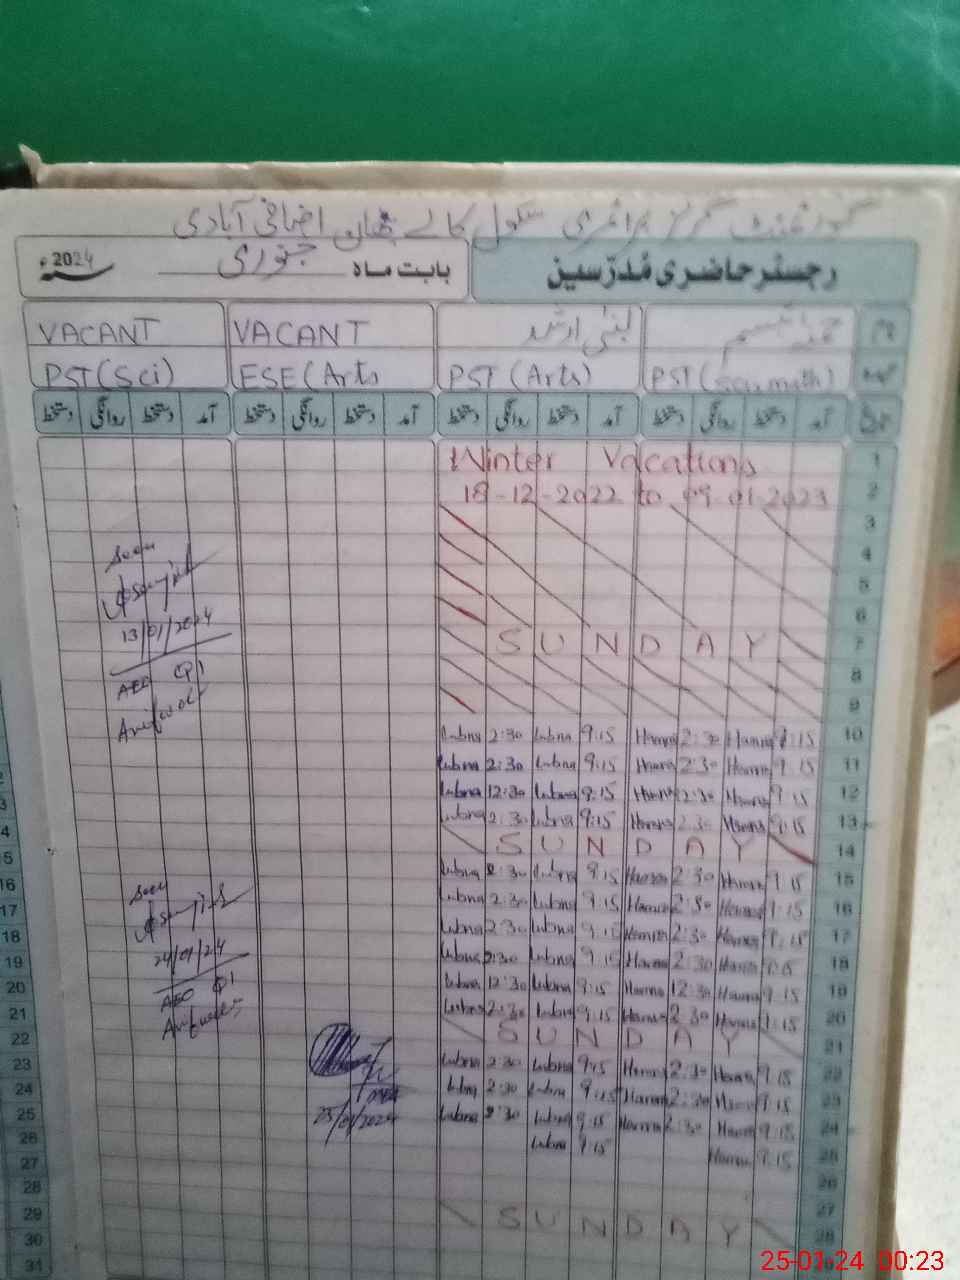 گورنمنٹ گرلز پرائمری سکول کالے اضافی آبادی
رجسٹر حاضری مُدرّسین
بابت ماہ جنوری 2024ء
نام
لبنیٰ ارشد VACANT VACANT
عہدہ PST (math) PST (Arts) ESE (Arts PST (Sci)
آمد دستخط روانگی دستخط آمد دستخط روانگی دستخط آمد دستخط روانگی دستخط آمد دستخط روانگی دستخط
Winter Vacations 1
18-12-2022 to 09-01-2023 2
3
4
5
6
SUNDAY 7
8
9
Lubna 2:30 Lubna 9:15 Hamna 2:30 Hamna 9:15 10
Lubna 2:30 Lubna 9:15 Hamna 2:30 Hamna 9:15 11
Lubna 12:30 Lubna 9:15 Hamna 2:30 Hamna 9:15 12
Lubna 2:30 Lubna 9:15 Hamna 2:30 Hamna 9:15 13
SUNDAY 14
Lubna 2:30 Lubna 9:15 Hamna 2:30 Hamna 9:15 15
Lubna 2:30 Lubna 9:15 Hamna 2:30 Hamna 9:15 16
Lubna 2:30 Lubna 9:15 Hamna 2:30 Hamna 9:15 17
Lubna 2:30 Lubna 9:15 Hamna 2:30 Hamna 9:15 18
Lubna 12:30 Lubna 9:15 Hamna 12:30 Hamna 9:15 19
Lubna 2:30 Lubna 9:15 Hamna 2:30 Hamna 9:15 20
SUNDAY 21
Lubna 2:30 Lubna 9:15 Hamna 2:30 Hamna 9:15 22
Lubna 2:30 Lubna 9:15 Hamna 2:30 Hamna 9:15 23
Lubna 2:30 Lubna 9:15 Hamna 2:30 Hamna 9:15 24
Lubna 9:15 Hamna 9:15 25
26
27
SUNDAY 28
Seen
13/01/2024
AEO
Seen
24/01/24
AEO
25/01/2024
15
16
17
18
19
20
21
22
23
24
25
26
27
28
29
30
31
25-01-24 00:23